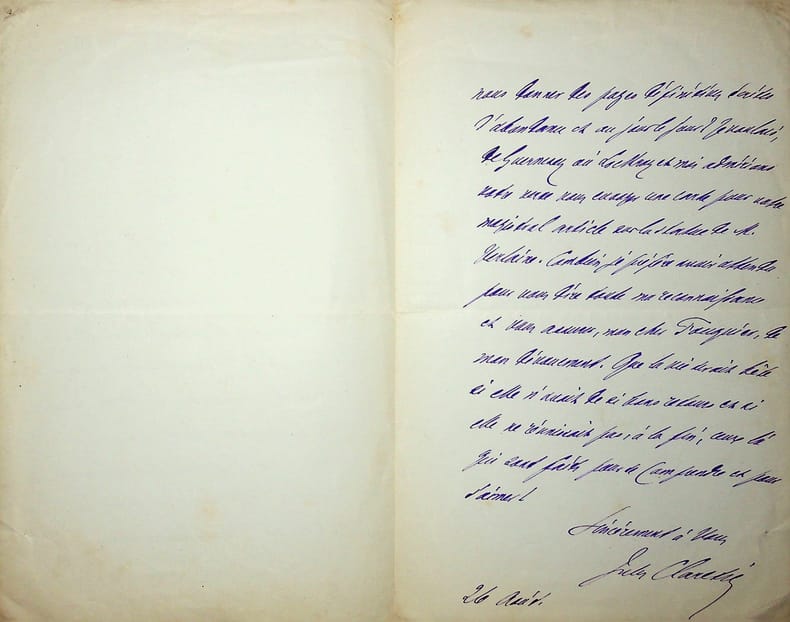 nous donner des pages définitives écrites
d'abandonne et au jour le jour! Je voulais,
de Guernesey où Lockroy et moi admirions
votre verve vous envoyer une carte pour votre
magistral article sur la statue de M.
Verlaine. Combien j'ai préféré
pour vous dire toute ma reconnaissance
et vous assurer, mon cher Fouquier, de
mon dévouement. Que la vie serait bête
si elle n'avait de si bons retours et si
elle ne réunissait pas, à la fin, ceux là
qui sont faits pour se comprendre et pour
s'aimer!
Sincèrement à vous
Jules Claretie
26 Août.